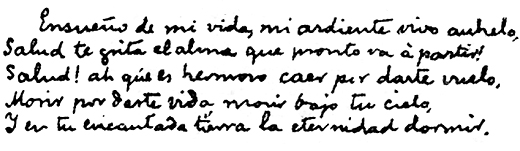 Ensueño de mi vida, mi ardiente vivo anhelo,
Salud te grita el alma que pronto va á partir!
Salud! ah qúe es hermoso caer por darte vuelo,
Morir por darte vida, morir bajo tu cielo,
Y en tu encantada tierra la eternidad dormir.